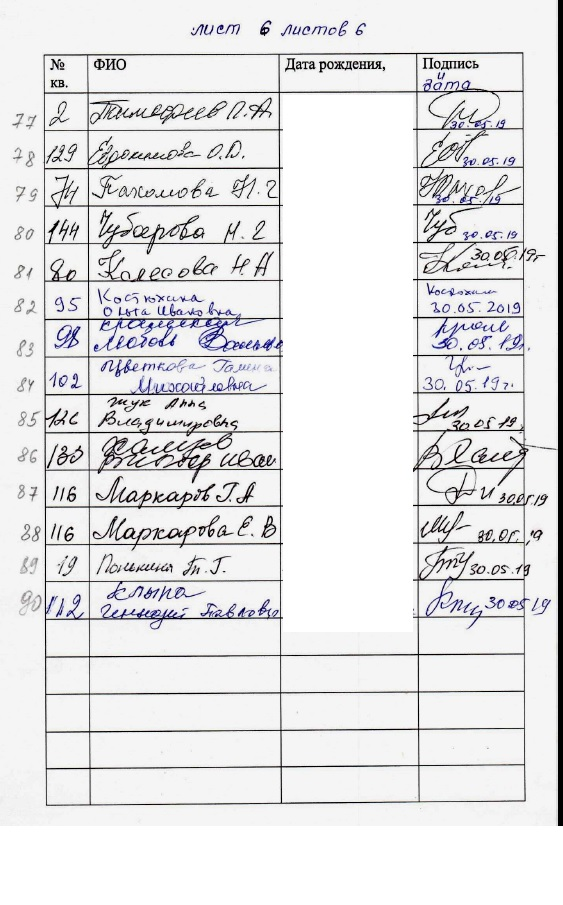 лист 6 листов 6
№ кв. ФИО Дата рождения, Подпись и дата
77 2 Тимофеев П.А 30.05.19
78 129 Евдокимова О.Д. 30.05.19
79 74 Пахомова Н.Г 30.05.19
80 144 Чубарова Н.Г Чуб 30.05.19
81 80 Колесова Н А 30.05.19г
82 95 Костюхина
Ольга Ивановна 30.05.2019
83 98 Любовь 30.05.19г.
84 102 Цветкова Галина
Михайловна 30.05.19г.
85 126 Жук Анна
Владимировна 30.05.19.
86 133
Виктор Иван
87 116 Маркаров Г.А 30.05.19
88 116 Маркарова Е.В 30.05.19
89 19 30.05.19
90 112 Клыпа
Геннадий Павлович 30.05.19